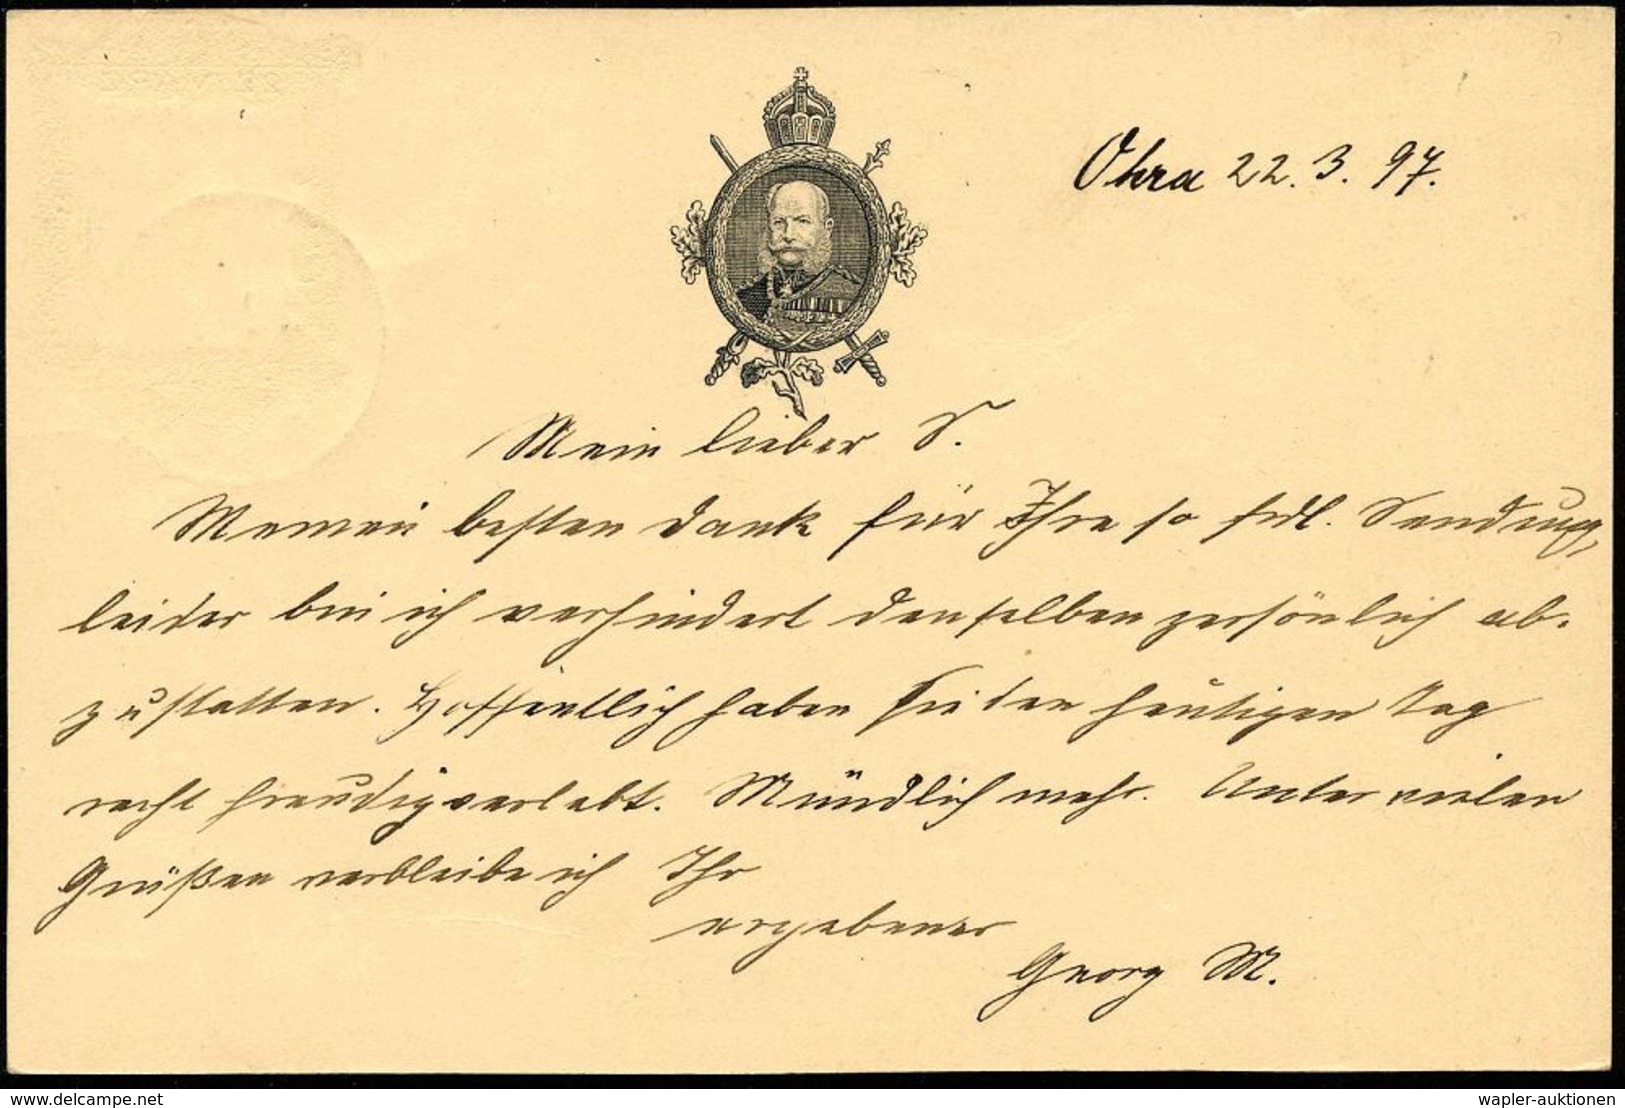 Ohra 22. 3. 97.
Mein lieber S.
Meinen besten Dank für Ihre so frdl. Sendung,
leider bin ich verhindert denselben persönlich ab-
zustatten. Hoffentlich haben Sie den heutigen Tag
recht freudig verlebt. Mündlich mehr. Unter vielen
Grüßen verbleibe ich Ihr
ergebener
Georg M.
delcampe.net
wapler-auktionen